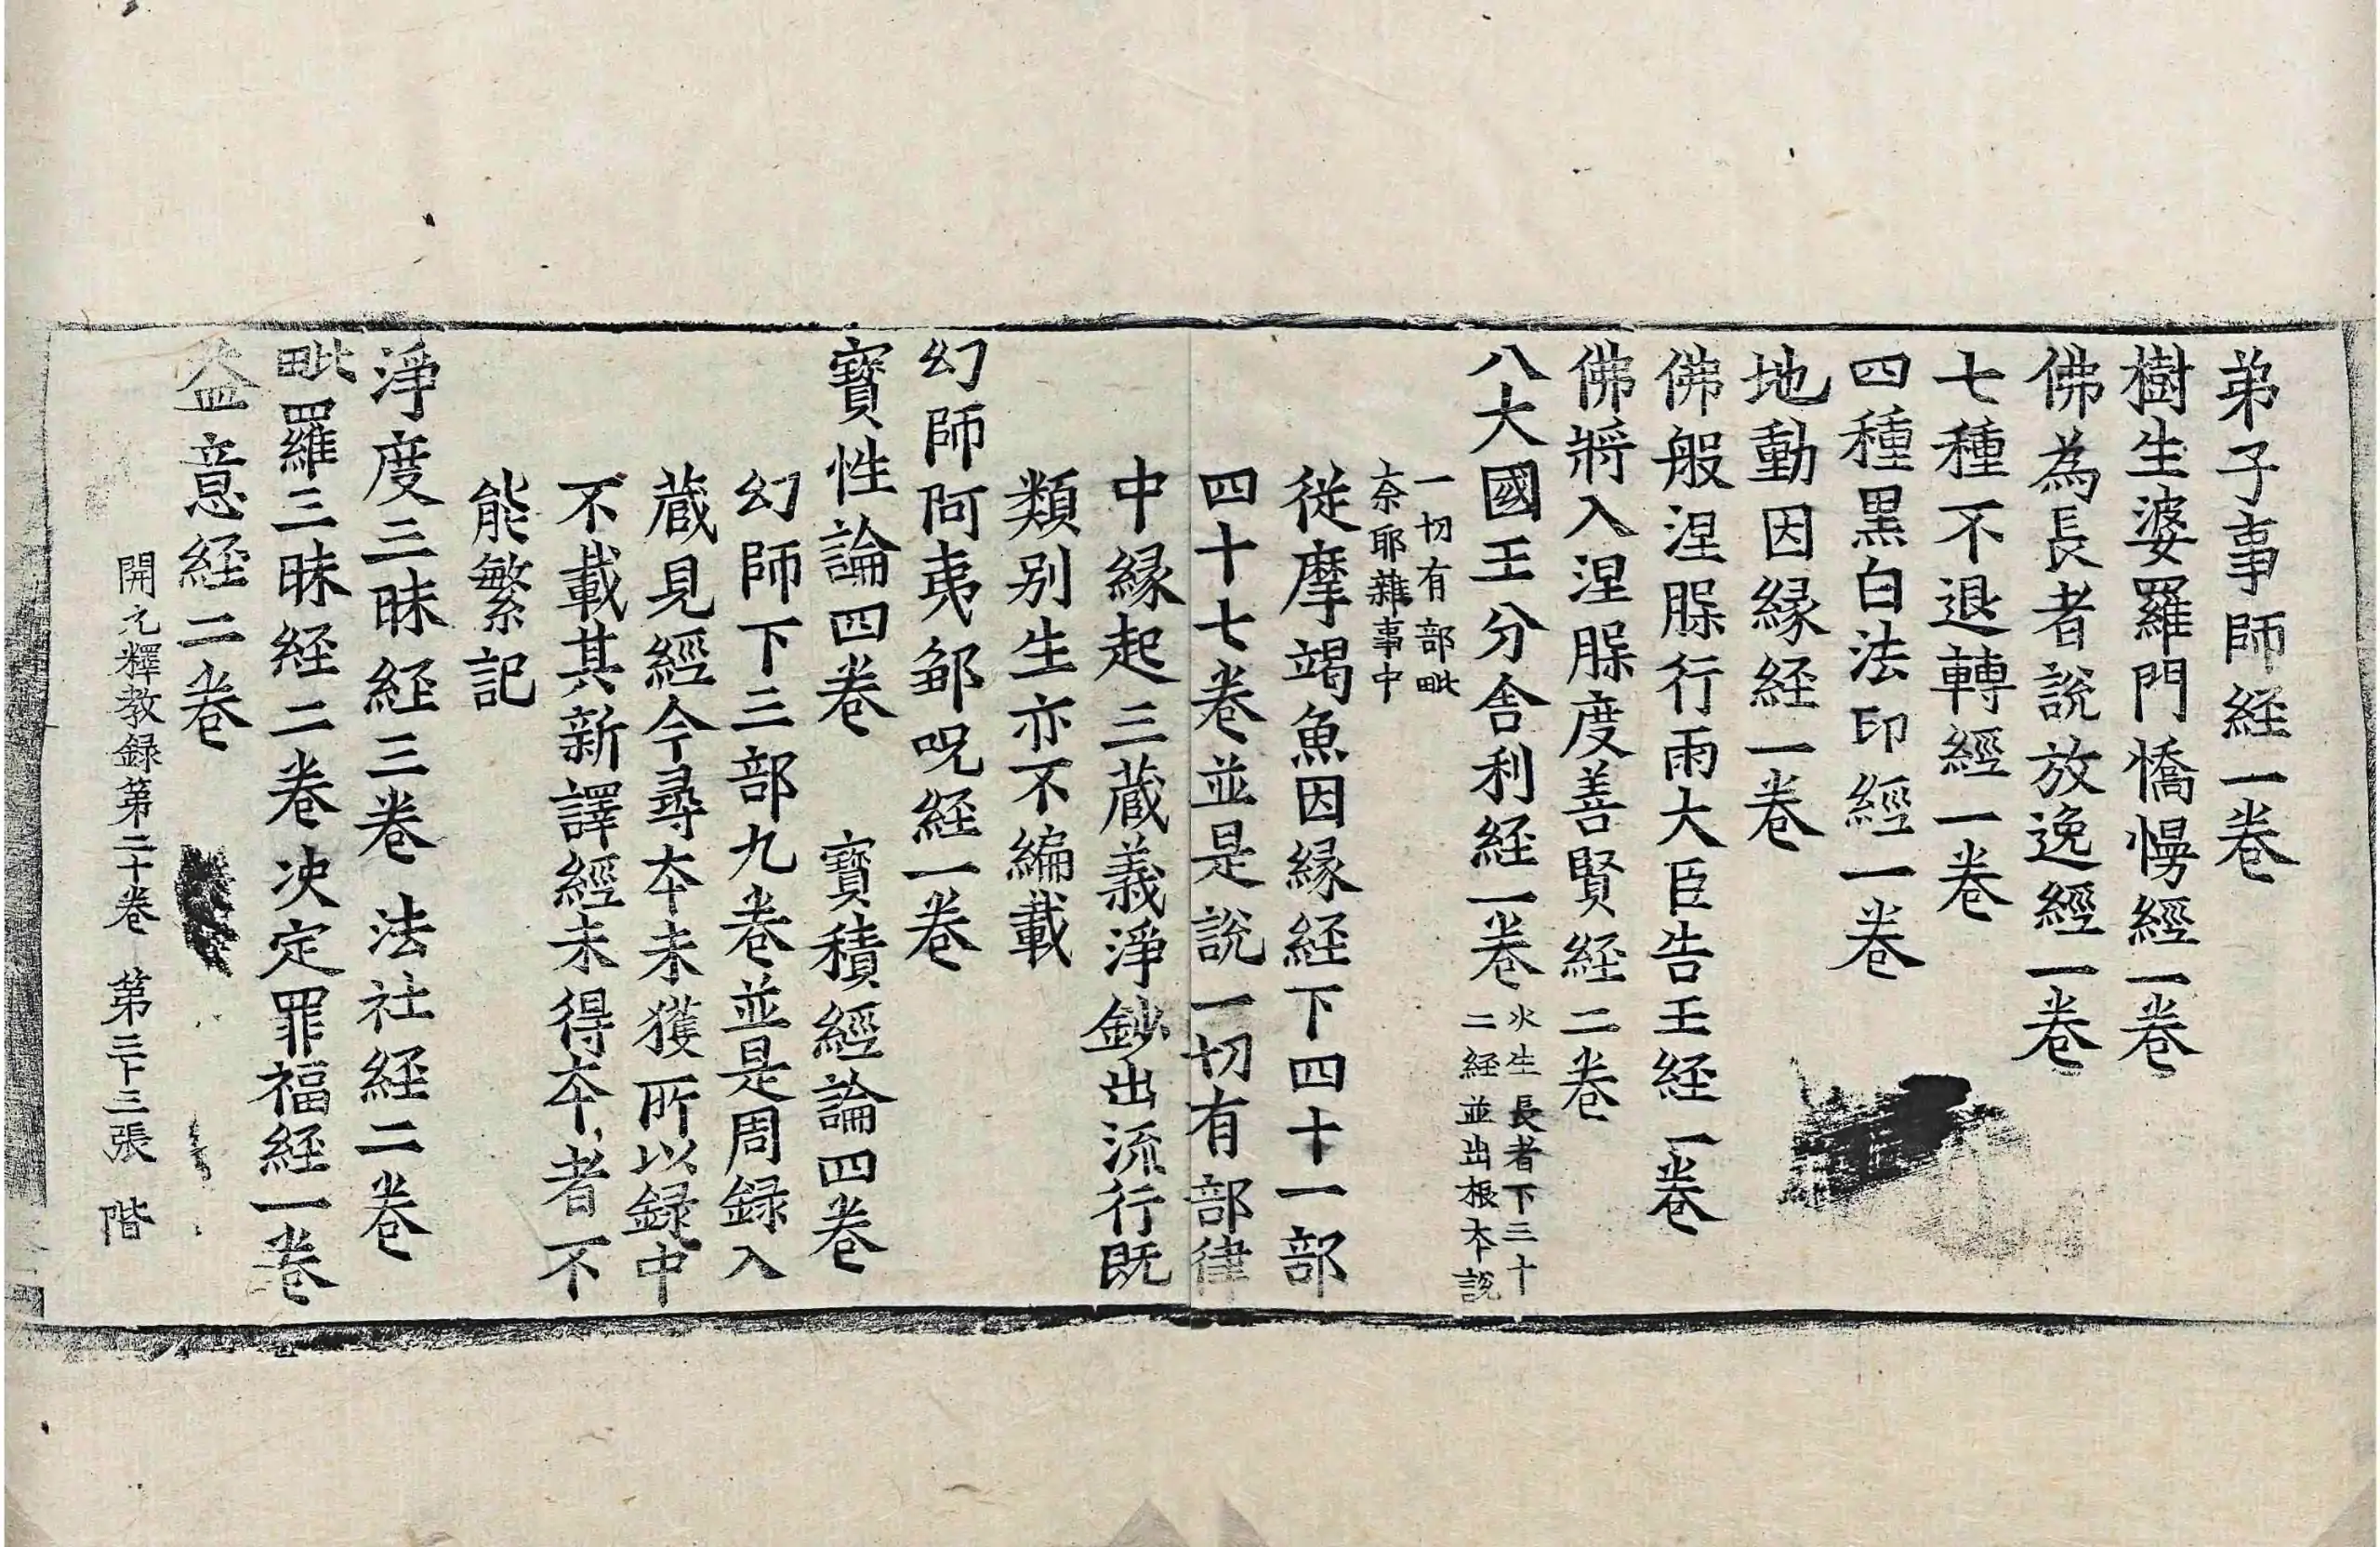 弟子事師経一卷
樹生婆羅門憍慢經一卷
佛為長者說放逸經一卷
七種不退轉經一卷
四種黒白法印經一卷
地動因縁経一卷
佛般涅槃行雨大臣告王経一卷
佛將入涅槃度善賢経二卷
八大國王分舎利経一卷
火生長者下三十
二経並出根本説
一切有部毗
奈耶雜事中
従摩竭魚因縁経下四十一部
四十七卷並是説一切有部律
中縁起三蔵義淨鈔出流行既
類別生亦不編載
幻師阿夷鄒呪経一卷
寶性論四卷　寶積經論四卷
幻師下三部九卷並是周録入
蔵見經今尋本未獲所以録中
不載其新譯經未得本者不
能繁記
淨度三昧経三卷　法社経二卷
毗羅三昧経二卷　决定罪福経一卷
益意経二卷
開元釋教録第二十卷　第三十三張　階